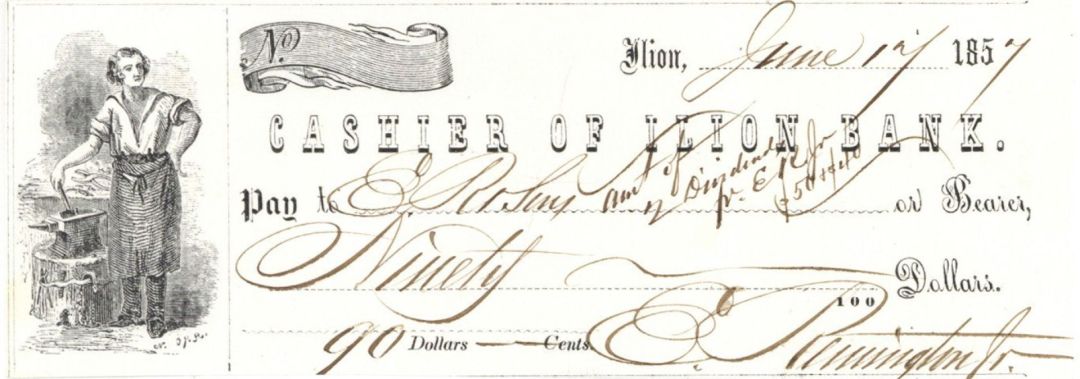 No.
Ilion, June 17 1857
CASHIER OF ILION BANK.
Pay to E. R & Sons Amt of Dividends pr. E R Jr or Bearer,
Ninety 100 Dollars.
90 Dollars — Cents. E. Remington Jr.